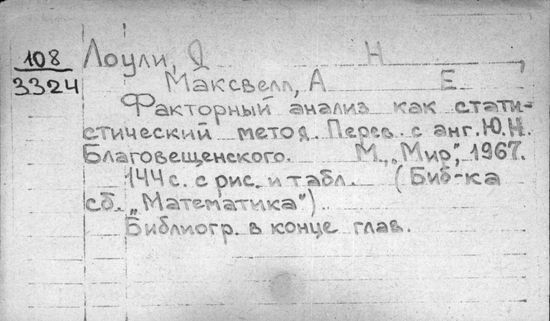 108
3324
Лоули, Д Н
Максвелл, А Е
Факторный анализ как стати-
стический метод. Перев. с анг. Ю.Н.
Благовещенского. М., „Мир", 1967.
144 с. с рис. и табл. (Биб-ка
сб. „Математика")
Библиогр. в конце глав.